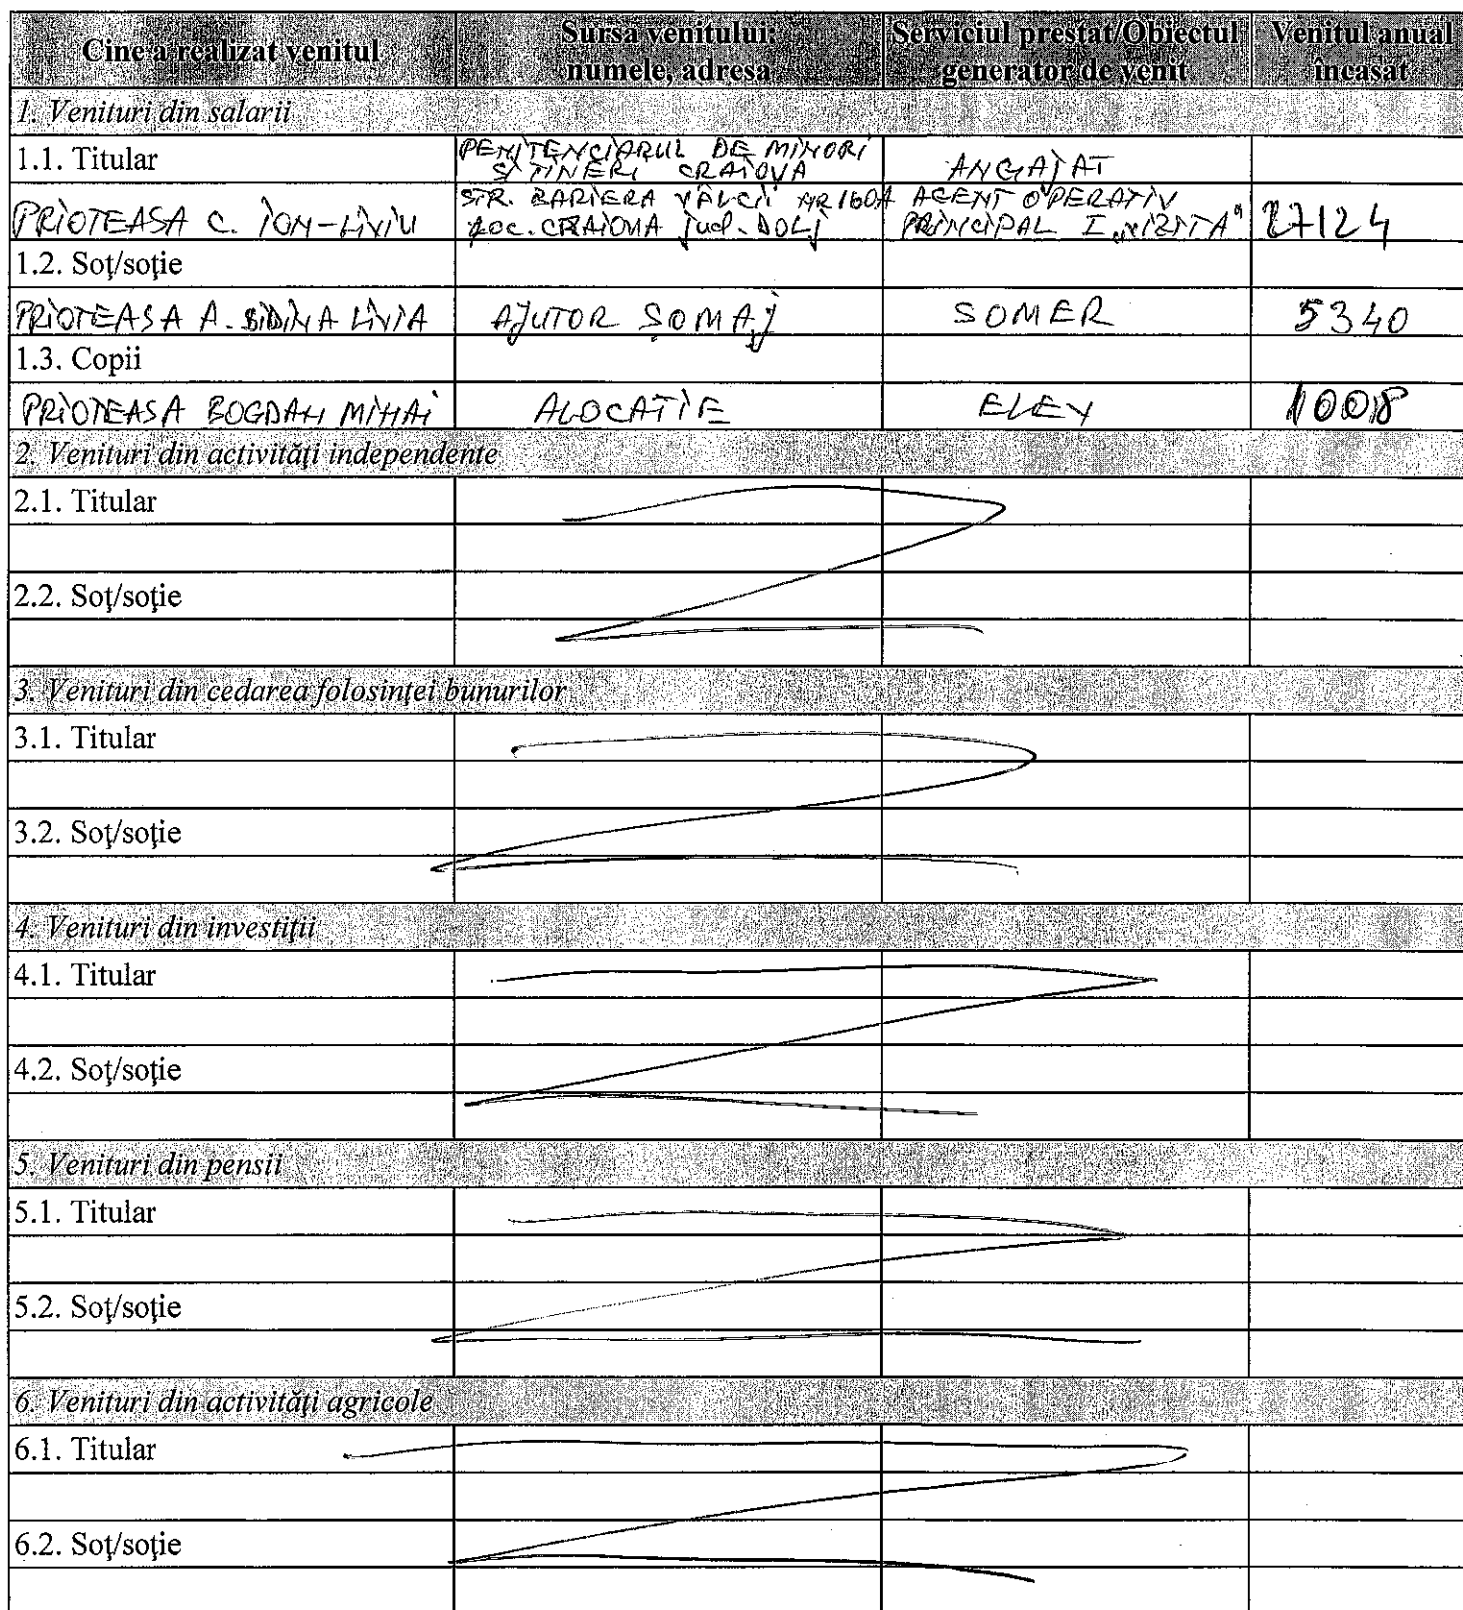 Cine a realizat venitul
Sursa venitului: numele, adresa
Serviciul prestat/Obiectul generator de venit
Venitul anual încasat
1. Venituri din salarii
1.1. Titular
PENITENCIARUL DE MINORI
SI TINERI CRAIOVA
ANGAJAT
PRIOTEASA C. ION-LIVIU
STR. BARIERA VÂLCII NR 160A
LOC. CRAIOVA jud. DOLJ
AGENT OPERATIV
PRINCIPAL I „VIZITA"
27124
1.2. Soţ/soţie
PRIOTEASA A. LIVIA
AJUTOR ŞOMAJ
SOMER
5340
1.3. Copii
PRIOTEASA BOGDAN MIHAI
ALOCATIE
ELEV
1008
2. Venituri din activităţi independente
2.1. Titular
2.2. Soţ/soţie
3. Venituri din cedarea folosinţei bunurilor
3.1. Titular
3.2. Soţ/soţie
4. Venituri din investiţii
4.1. Titular
4.2. Soţ/soţie
5. Venituri din pensii
5.1. Titular
5.2. Soţ/soţie
6. Venituri din activităţi agricole
6.1. Titular
6.2. Soţ/soţie